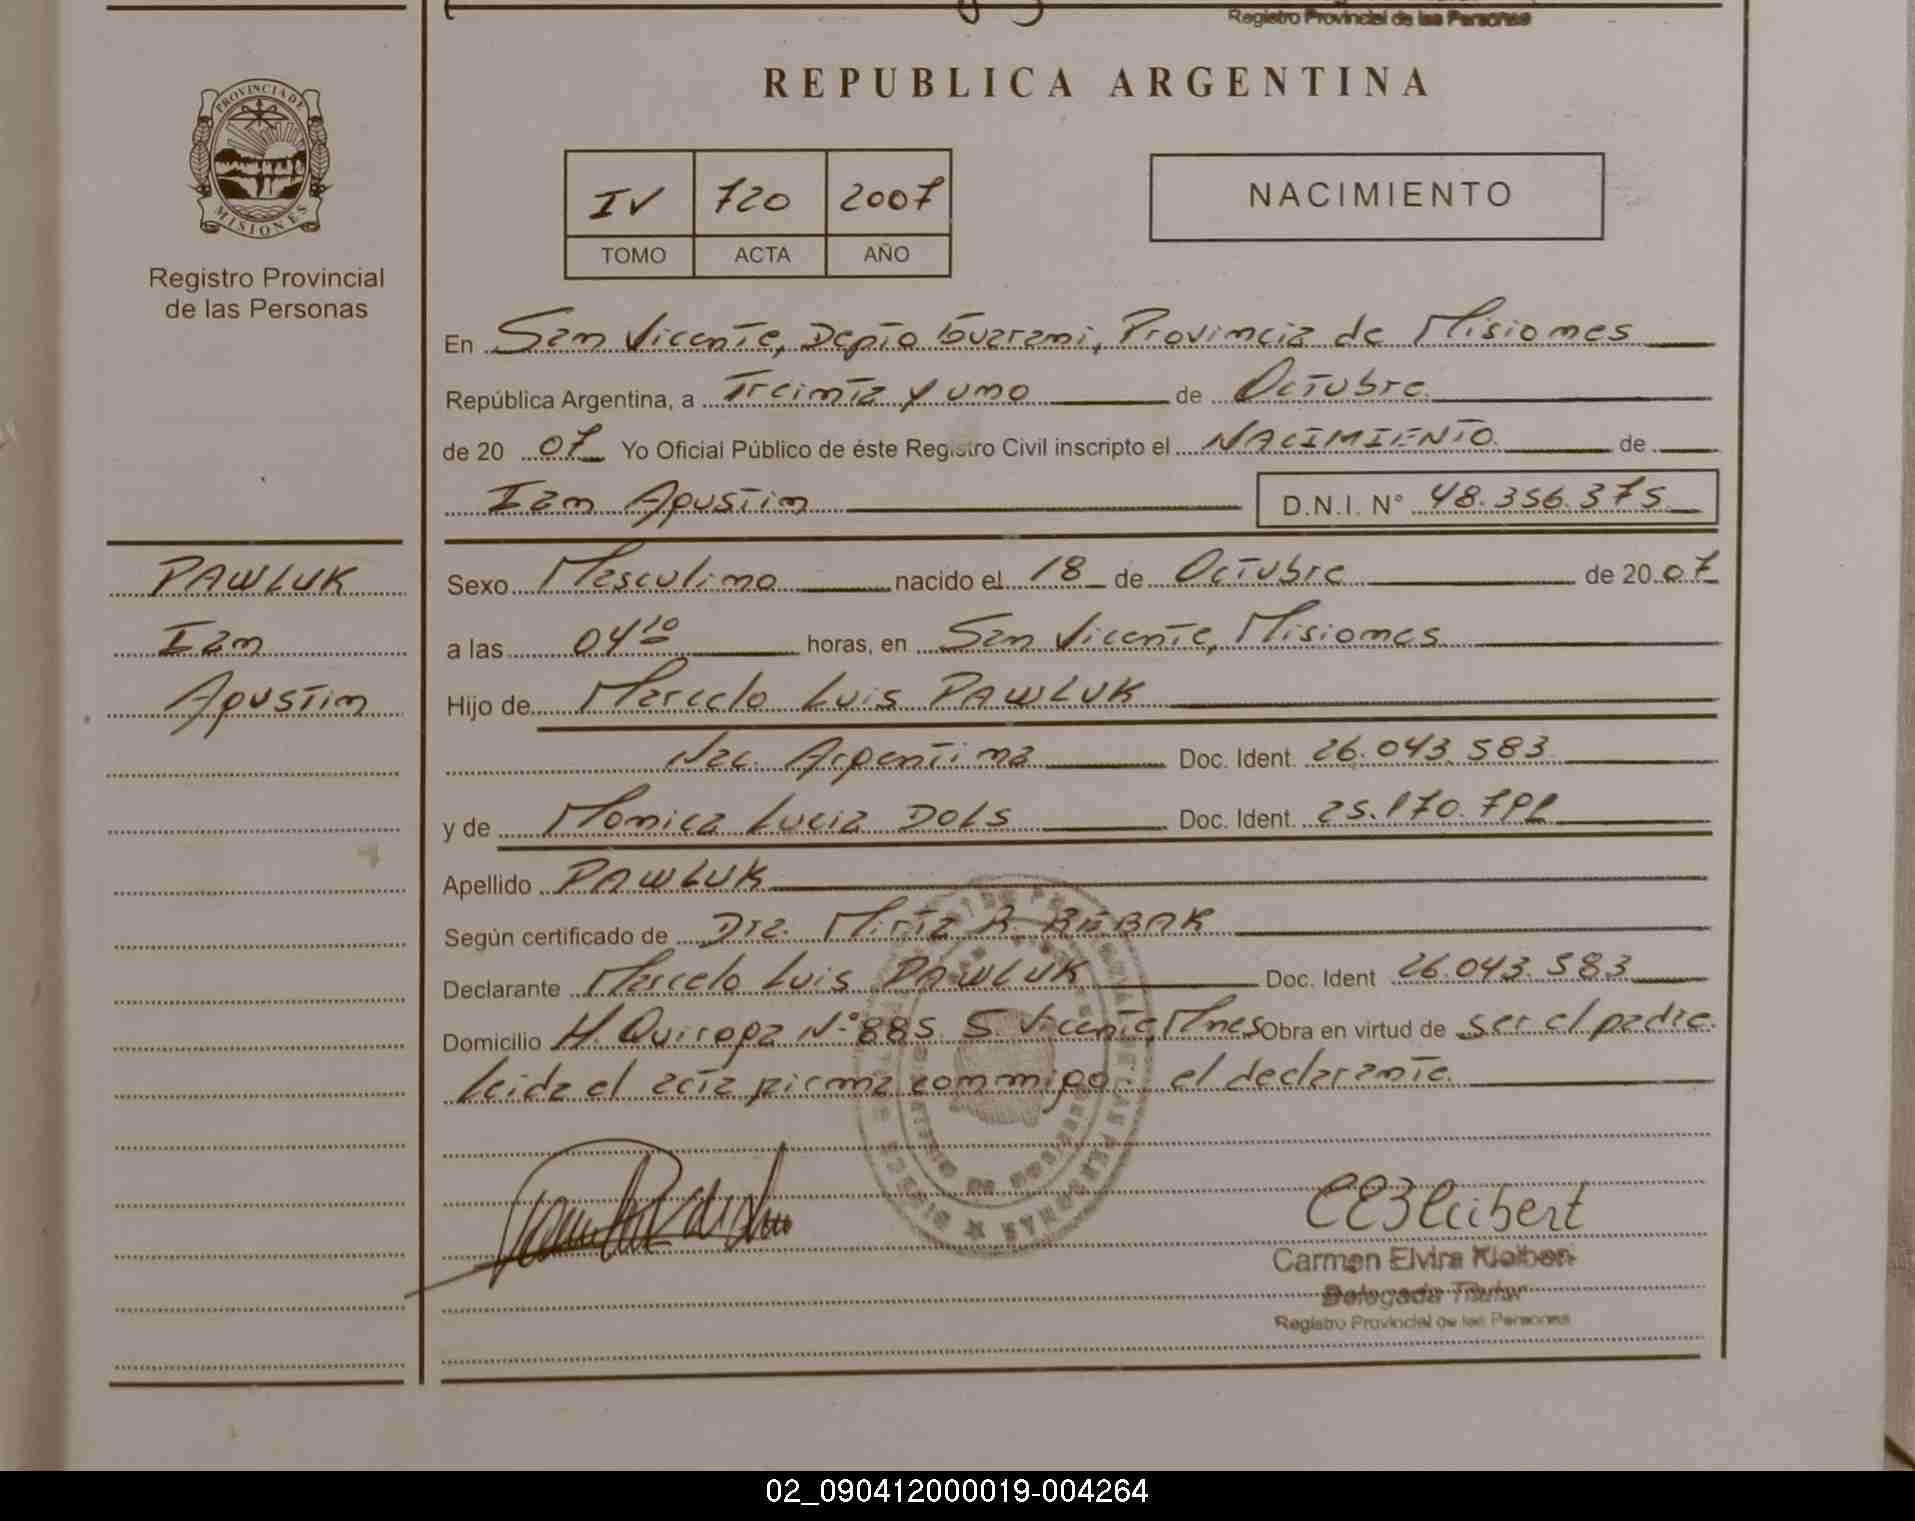 Registro Provincial de las Personas
PROVINCIA DE
MISIONES
Registro Provincial
de las Personas
REPUBLICA ARGENTINA
IV 720 2007
TOMO ACTA AÑO
NACIMIENTO
En San Vicente, Depto Guarani, Provincia de Misiones
República Argentina, a Treinta y uno de Octubre
de 20 07 Yo Oficial Público de éste Registro Civil inscripto el NACIMIENTO de
Ian Agustin D.N.I. N° 48.356.375
PAWLUK
Ian
Agustin
Sexo Masculino nacido el 18 de Octubre de 20 07
a las 04 10 horas, en San Vicente, Misiones
Hijo de Marcelo Luis PAWLUK
Nac. Argentina Doc. Ident. 26.043.583
y de Monica Lucia DOLS Doc. Ident. 25.170.
Apellido PAWLUK
Según certificado de Dra. Mirta R.
Declarante Marcelo Luis PAWLUK Doc. Ident 26.043.583
Domicilio H. Quiroga N° 885 S. Vicente, Mnes Obra en virtud de ser el padre
leida el acta firma conmigo el declarante.
Carmen Elvira
Delegada Titular
Registro Provincial de las Personas
02_090412000019-004264